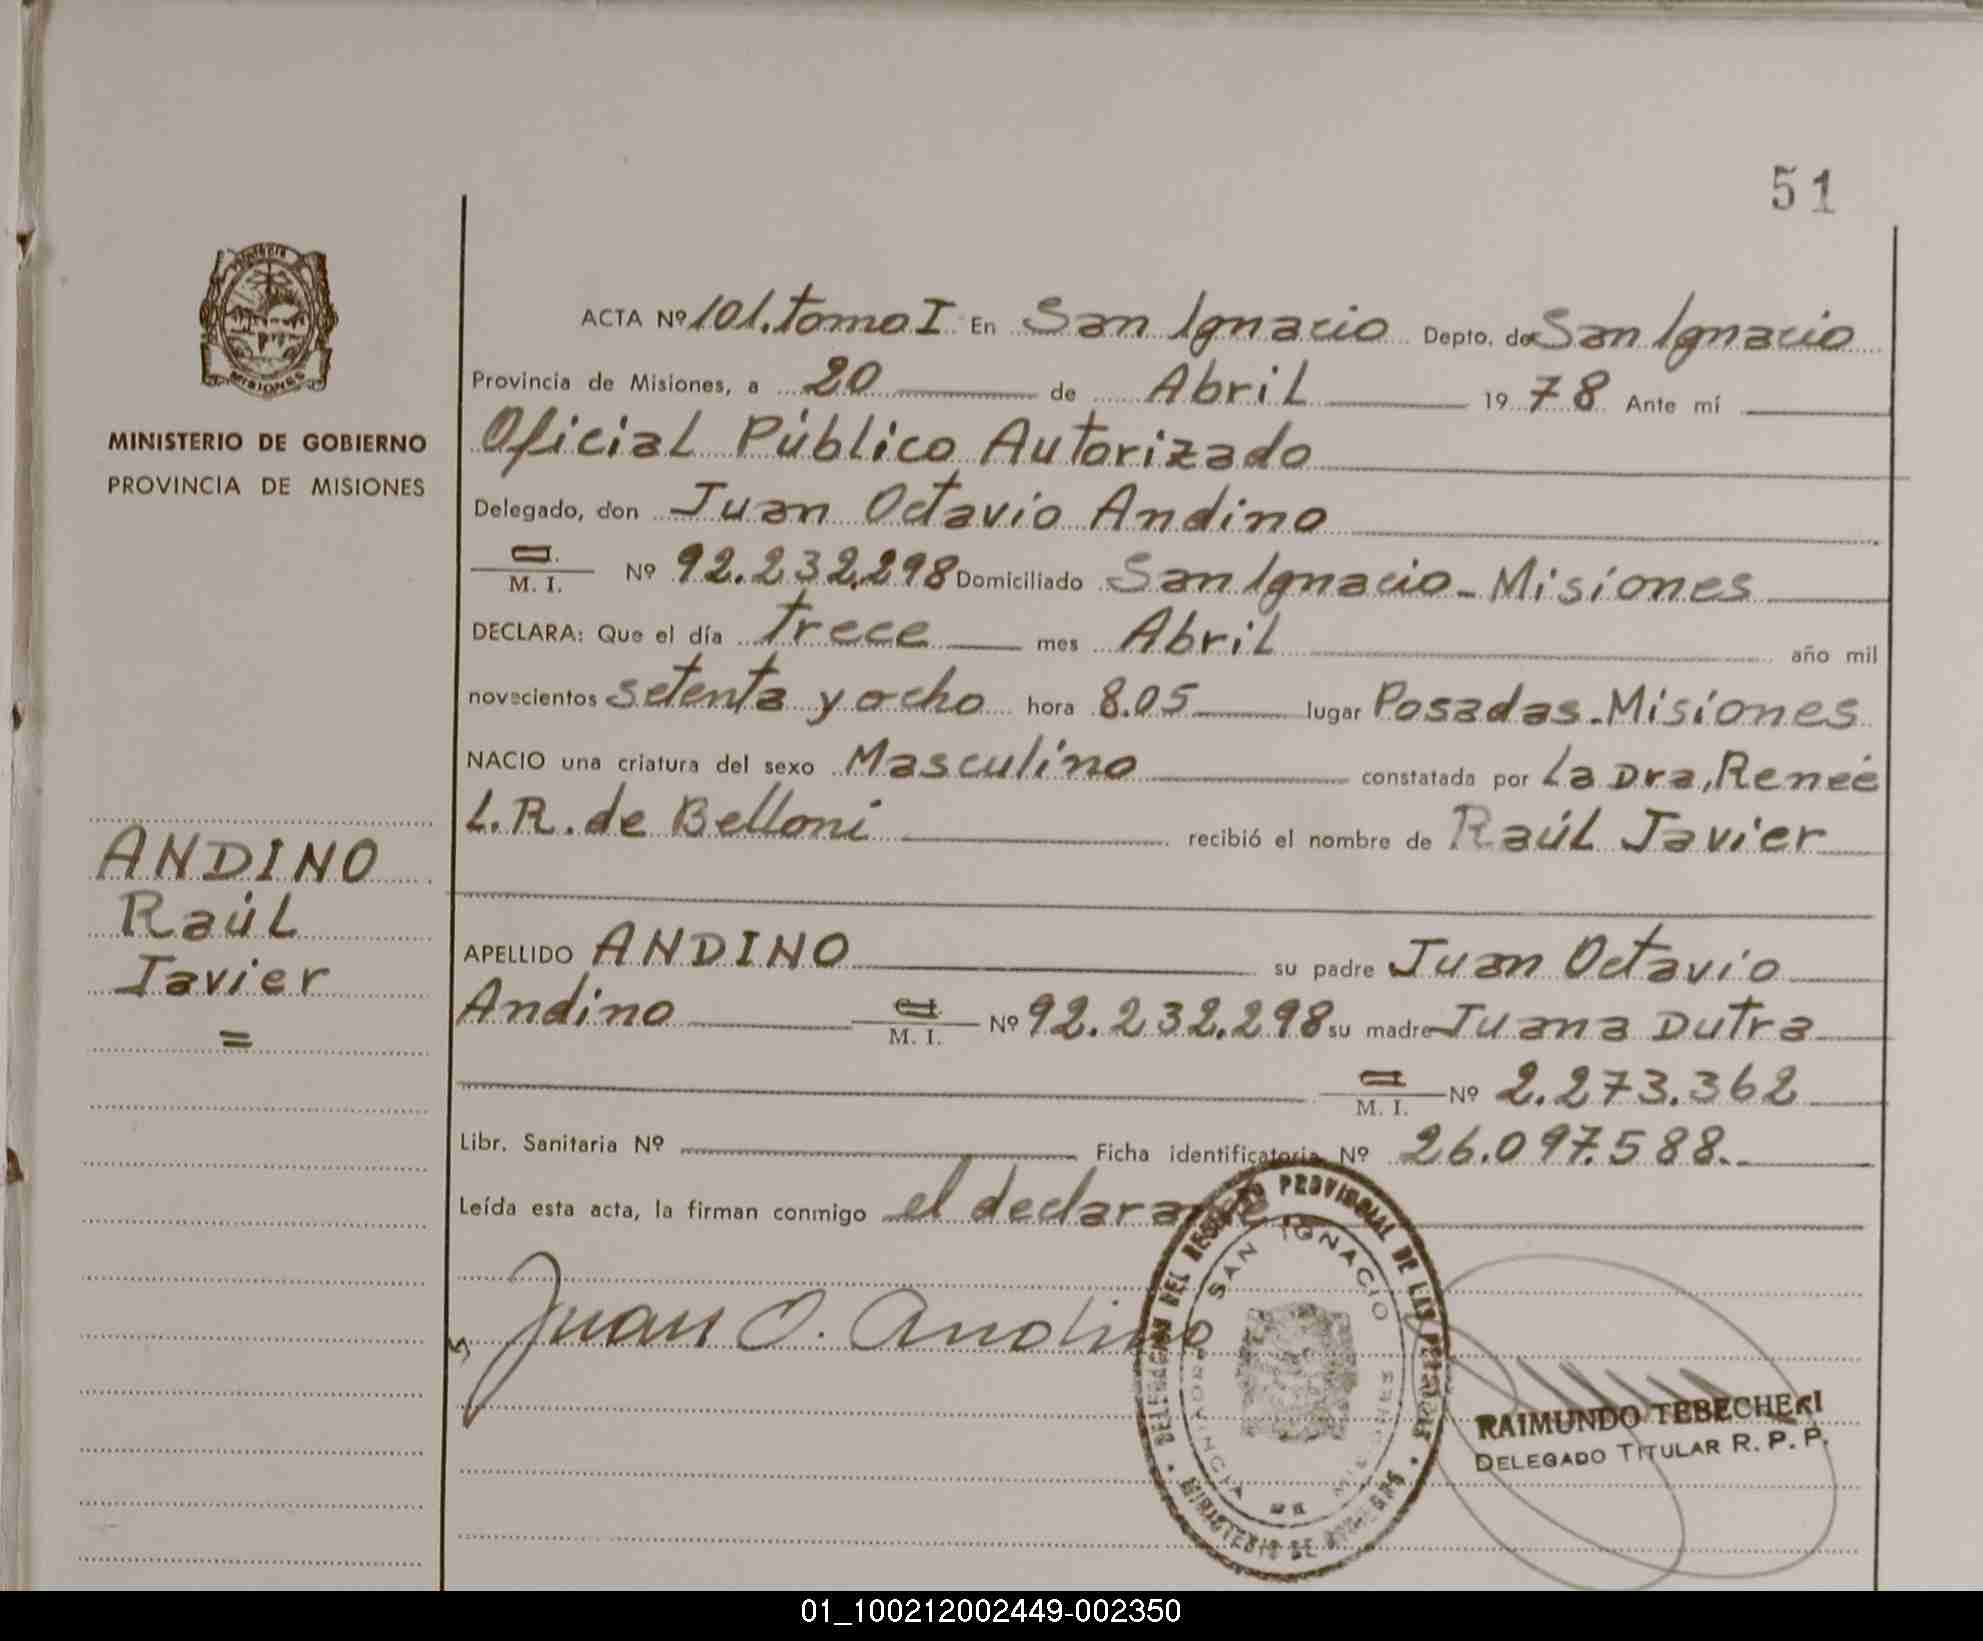 51
Provincia
MISIONES
MINISTERIO DE GOBIERNO
PROVINCIA DE MISIONES
ANDINO
Raúl
Javier
=
ACTA Nº 101. tomo I En San Ignacio Depto. de San Ignacio
Provincia de Misiones, a 20 de Abril 1978 Ante mí
Oficial Público Autorizado
Delegado, don Juan Octavio Andino
M. I. Nº 92.232.298 Domiciliado San Ignacio - Misiones
DECLARA: Que el día Trece mes Abril año mil
novecientos setenta y ocho hora 8.05 lugar Posadas - Misiones
NACIO una criatura del sexo Masculino constatada por La Dra, Reneé
L.R. de Belloni recibió el nombre de Raúl Javier
APELLIDO ANDINO su padre Juan Octavio
Andino M. I. Nº 92.232.298 su madre Juana Dutra
M. I. Nº 2.273.362
Libr. Sanitaria Nº Ficha identificatoria Nº 26.097.588.
Leída esta acta, la firman conmigo el declarante
Juan O. Andino
DELEGACION DEL REGISTRO PROVINCIAL DE LAS PERSONAS
SAN IGNACIO
PROVINCIA DE MISIONES
MINISTERIO DE GOBIERNO
RAIMUNDO TEBECHERI
DELEGADO TITULAR R. P. P.
01_100212002449-002350